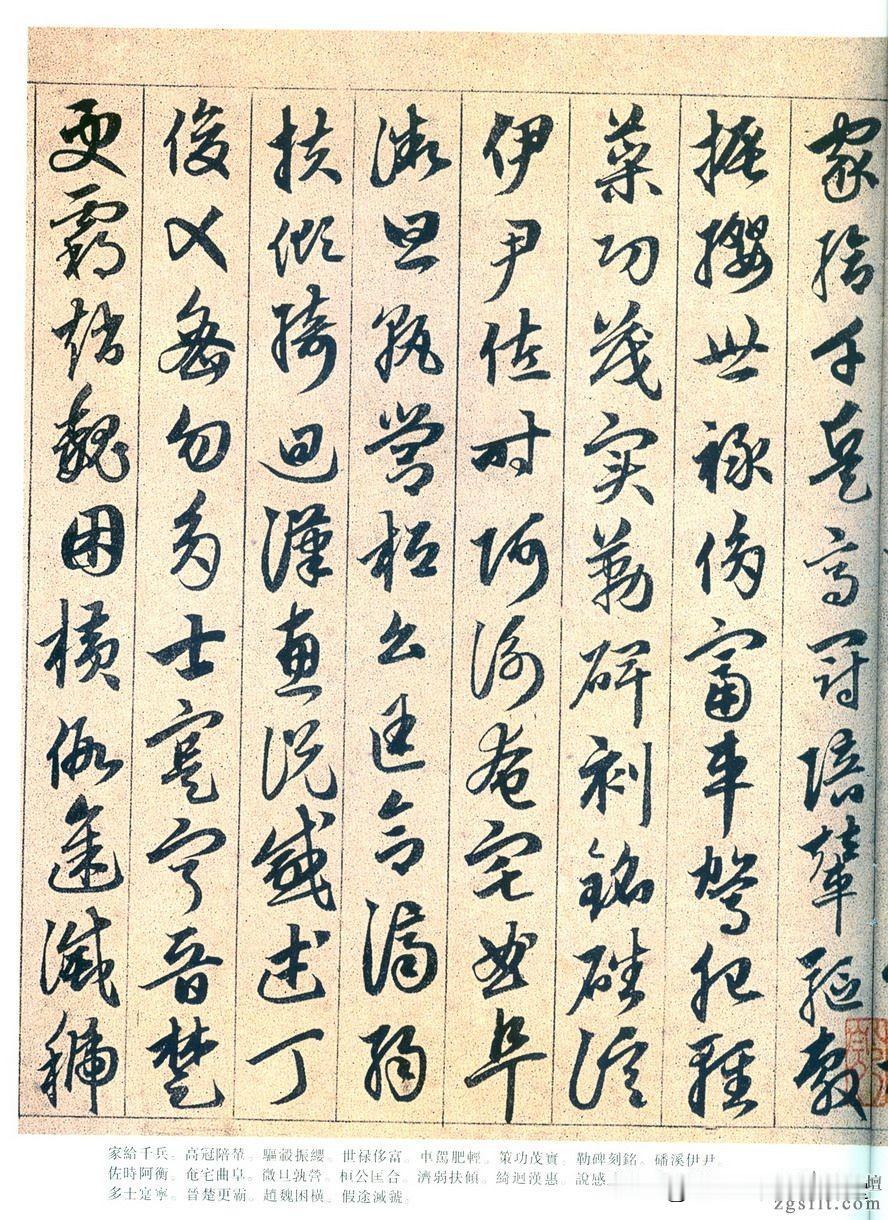 家給千兵高冠陪輦驅轂
振纓世祿侈富車駕肥輕
策功茂實勒碑刻銘磻溪
伊尹佐時阿衡奄宅曲阜
微旦孰營桓公匡合濟弱
扶傾綺迴漢惠說感武丁
俊乂密勿多士寔寧晉楚
更霸趙魏困橫假途滅虢
家給千兵。高冠陪輦。驅轂振纓。世禄侈富。車駕肥輕。策功茂實。勒碑刻銘。磻溪伊尹。
佐時阿衡。奄宅曲阜。微旦孰營。桓公匡合。濟弱扶傾。綺迴漢惠。說感
多士寔寧。晉楚更霸。趙魏困橫。假途滅虢。
壇
zgsflt.com